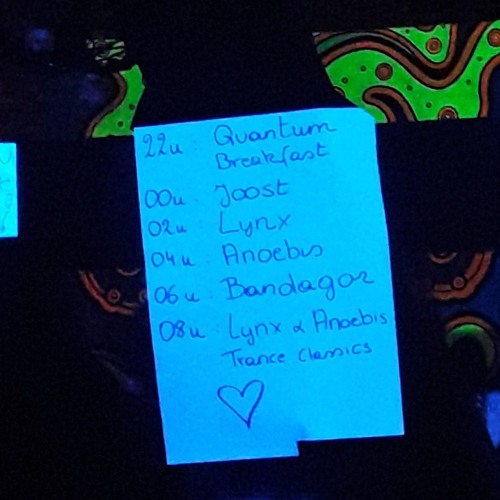 22u: Quantum
Breakfast
00u: Joost
02u: Lynx
04u: Anoebis
06u: Bandagor
08u: Lynx & Anoebis
Trance Classics